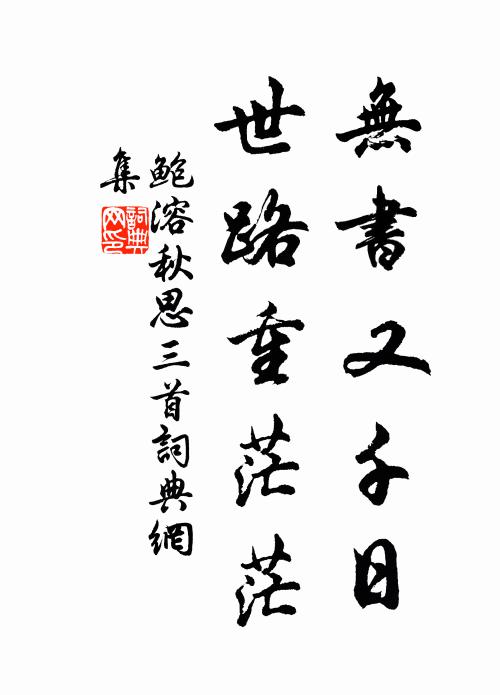 無書又千日
世路重茫茫
鲍溶秋思三首詞典網
集
詞典
网印